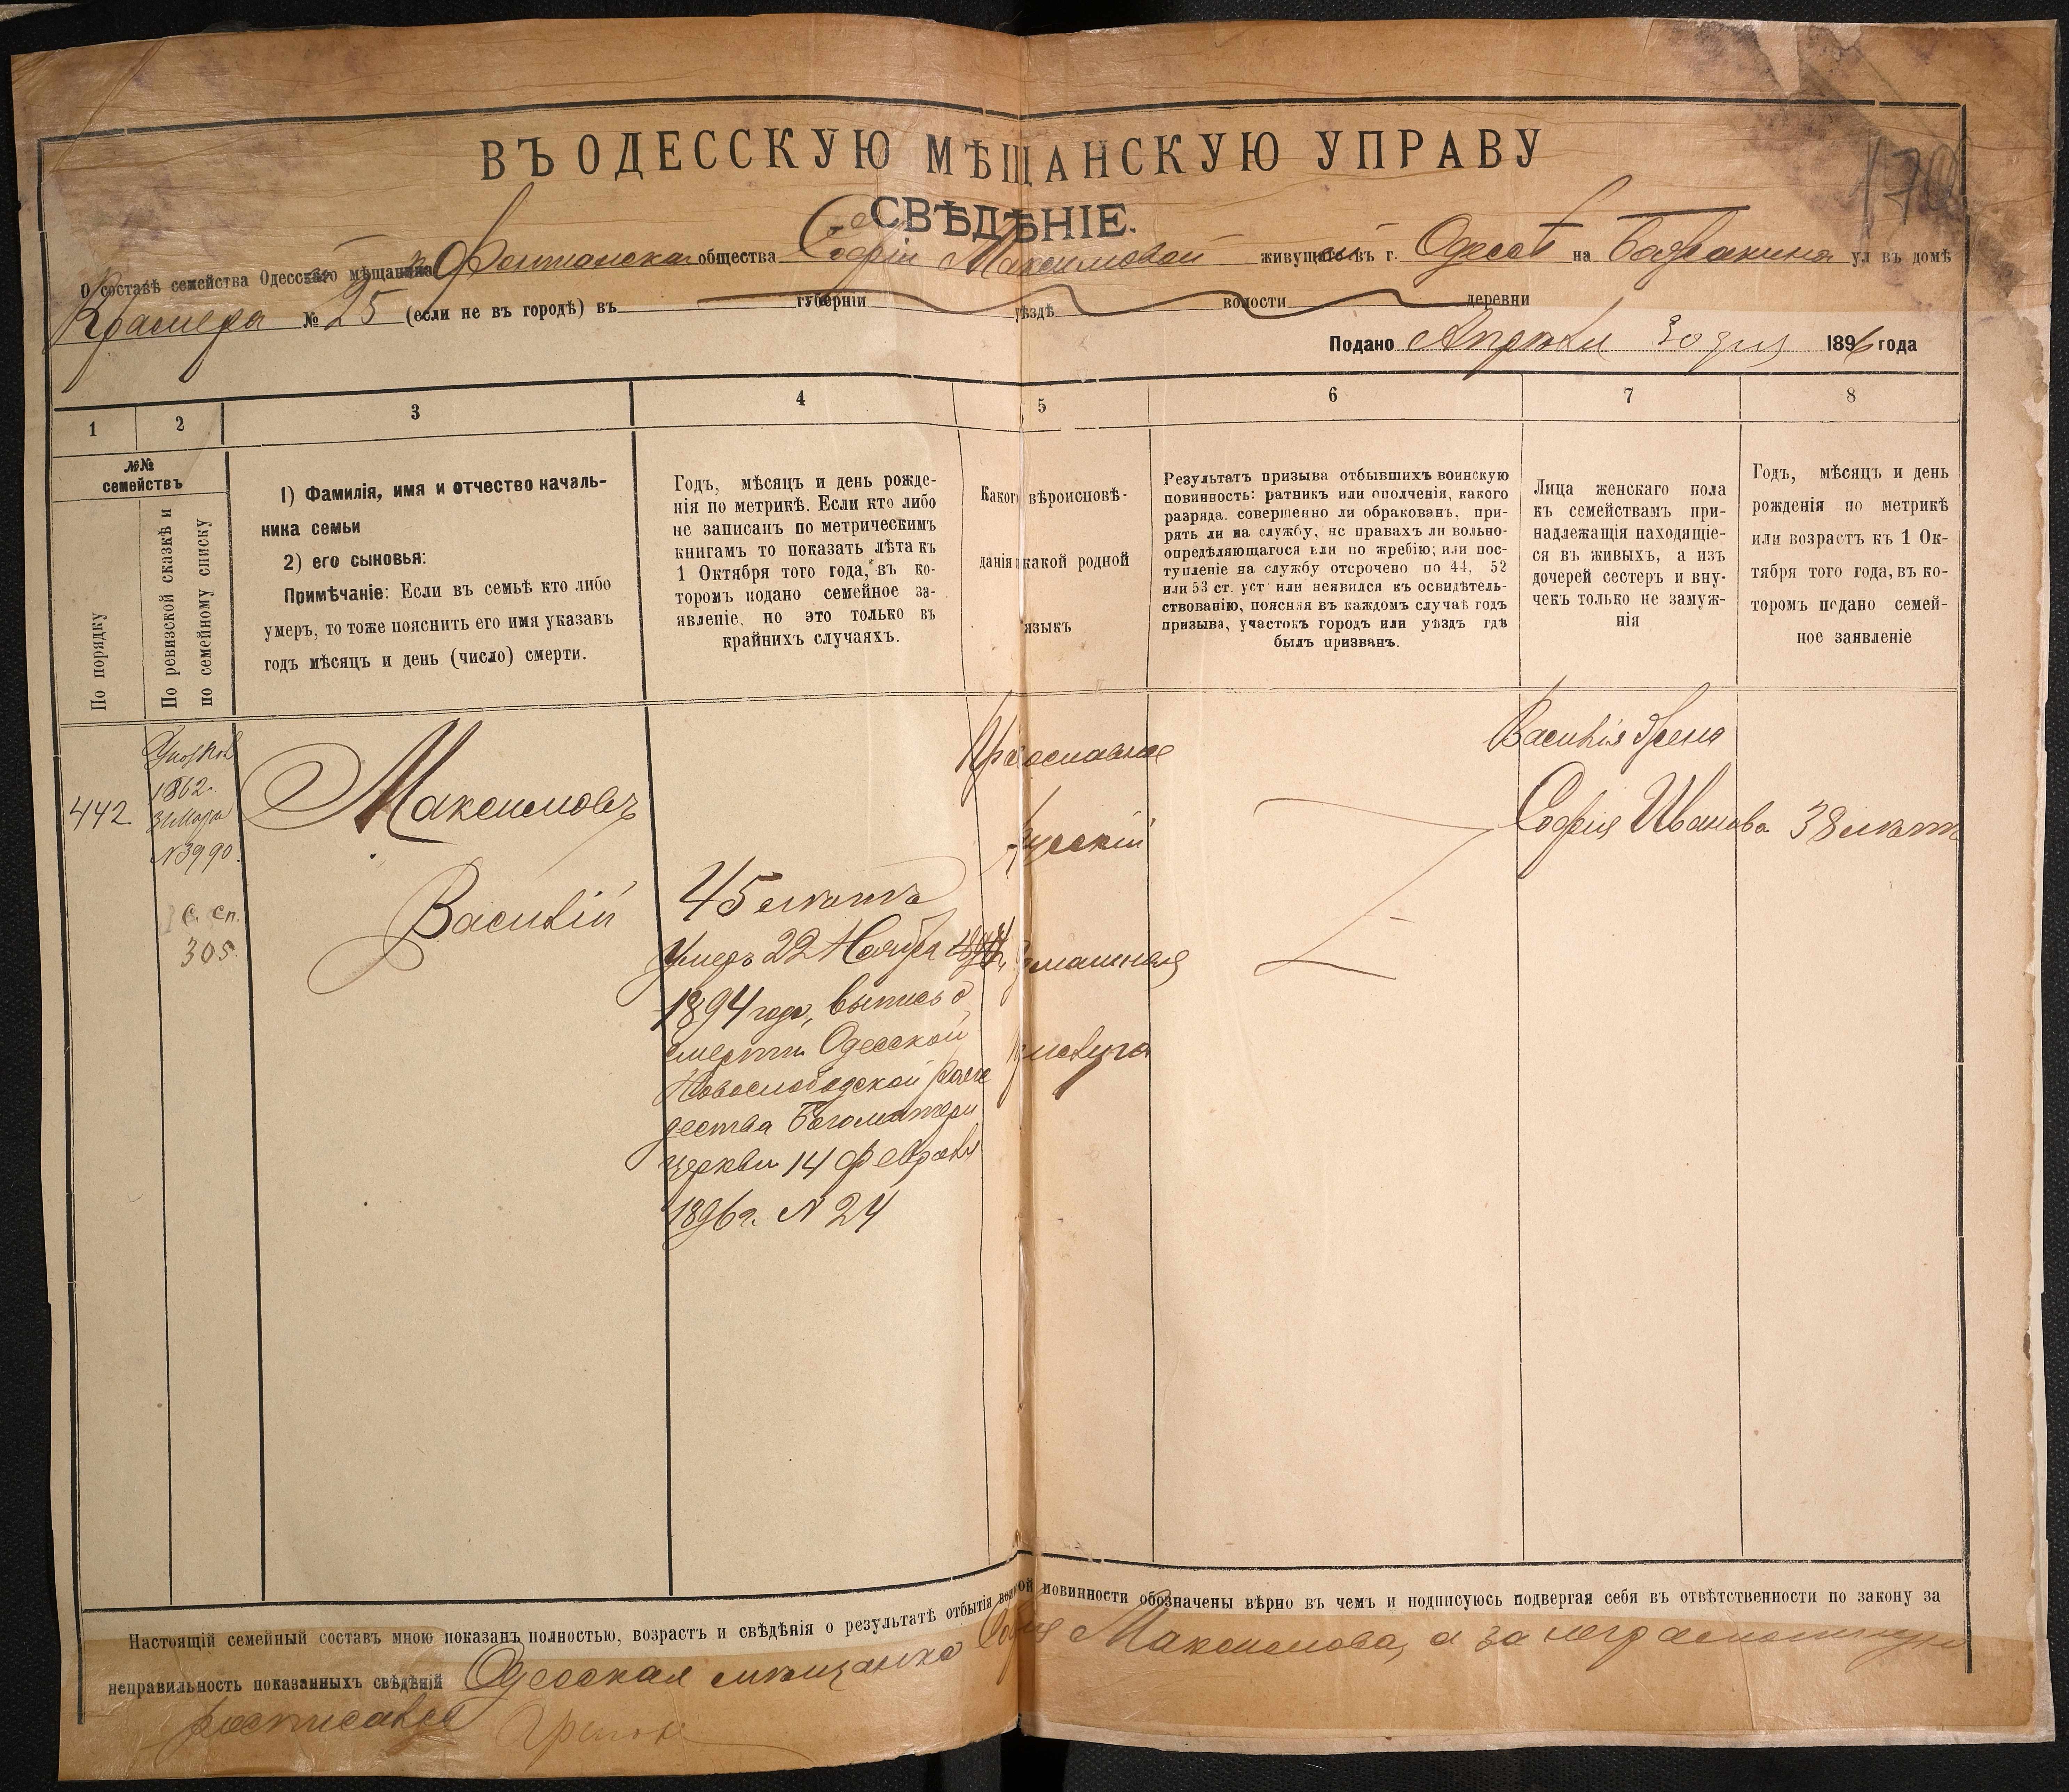 170
ВЪ ОДЕССКУЮ МѢЩАНСКУЮ УПРАВУ
СВѢДѢНІЕ.
О составѣ семейства Одесскаго мѣщанина Фонтанска общества Софіи Максимовой живущаго въ г. Одессѣ на ул въ домѣ
Крамера № 25 (если не въ городѣ) въ губерніи уѣздѣ волости деревни
Подано Апрѣля 30 дня 1896 года
1 2 3 4 5 6 7 8
№№ семействъ
По порядку
По ревизской сказкѣ и
по семейному списку
1) Фамилія, имя и отчество началь-
ника семьи
2) его сыновья:
Примѣчаніе: Если въ семьѣ кто либо
умеръ, то тоже пояснить его имя указавъ
годъ мѣсяцъ и день (число) смерти.
Годъ, мѣсяцъ и день рожде-
нія по метрикѣ. Если кто либо
не записанъ по метрическимъ
книгамъ то показать лѣта къ
1 Октября того года, въ ко-
торомъ подано семейное за-
явленіе, но это только въ
крайнихъ случаяхъ.
Какого вѣроисповѣ-
данія и какой родной
языкъ
Результатъ призыва отбывшихъ воинскую
повинность: ратникъ или ополченія, какого
разряда. совершенно ли обракованъ, при-
рять ли на службу, нс правахъ ли вольно-
опредѣляющагося или по жребію; или пос-
тупленіе на службу отсрочено по 44, 52
или 53 ст. уст или неявился къ освидѣтель-
ствованію, поясняя въ каждомъ случаѣ годъ
призыва, участокъ городъ или уѣздъ гдѣ
былъ призванъ.
Лица женскаго пола
къ семействамъ при-
надлежащія находящіе-
ся въ живыхъ, а изъ
дочерей сестеръ и вну-
чекъ только не замуж-
нія
Годъ, мѣсяцъ и день
рожденія по метрикѣ
или возрастъ къ 1 Ок-
тября того года, въ ко-
торомъ подано семей-
ное заявленіе
442
1862.
31 Марта
N 3990.
с. сп.
305.
Максимовъ
Василій
45 лѣтъ
Умеръ 22 Ноября
1894 года, выпись о
смерти Одесской
Новослободской Рож
дества Богоматери
церкви 14 Февраля
1896 г. N 24
Православное
Русскій
Домашняя
прислуга
Василія жена
Софія Иванова 38 лѣтъ
Настоящій семейный составъ мною показанъ полностью, возрастъ и свѣдѣнія о результатѣ отбытія воинской повинности обозначены вѣрно въ чемъ и подписуюсь подвергая себя въ отвѣтственности по закону за
неправильность показанныхъ свѣдѣній Одесская мѣщанка Софія Максимова, а за неграмотную
росписался